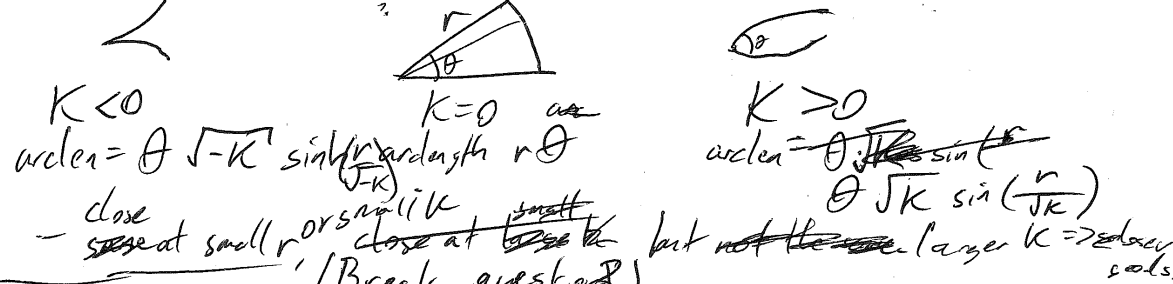 r
θ
K<0
K=0
K>0
arclen = θ √-K sinh(r/√-K)
arclength rθ
arclen =
θ √K sin(r/√K)
- close at small r or small K but larger K => closer
geods
(Break question?)